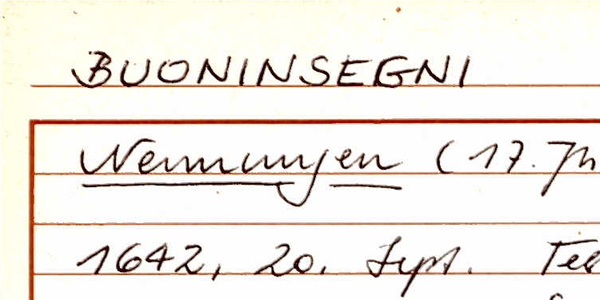 BUONINSEGNI
Nennungen (17. Jh
1642, 20. Sept.